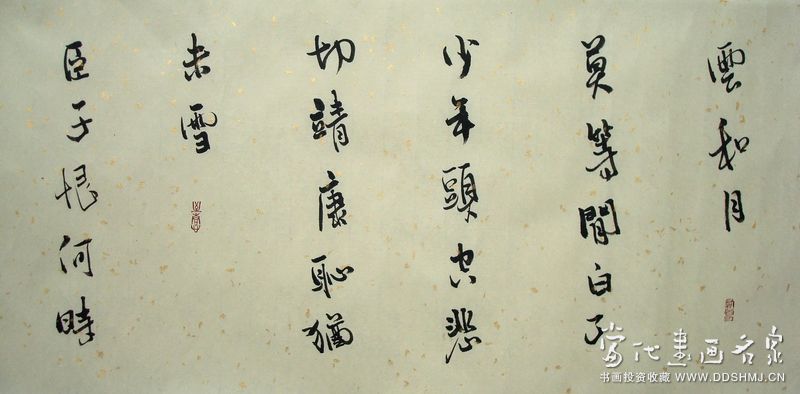 雲和月
莫等閒白了
少年頭空悲
切靖康恥猶
未雪
臣子恨何時
當代書画名家
书画投资收藏 WWW.DDSHMJ.CN